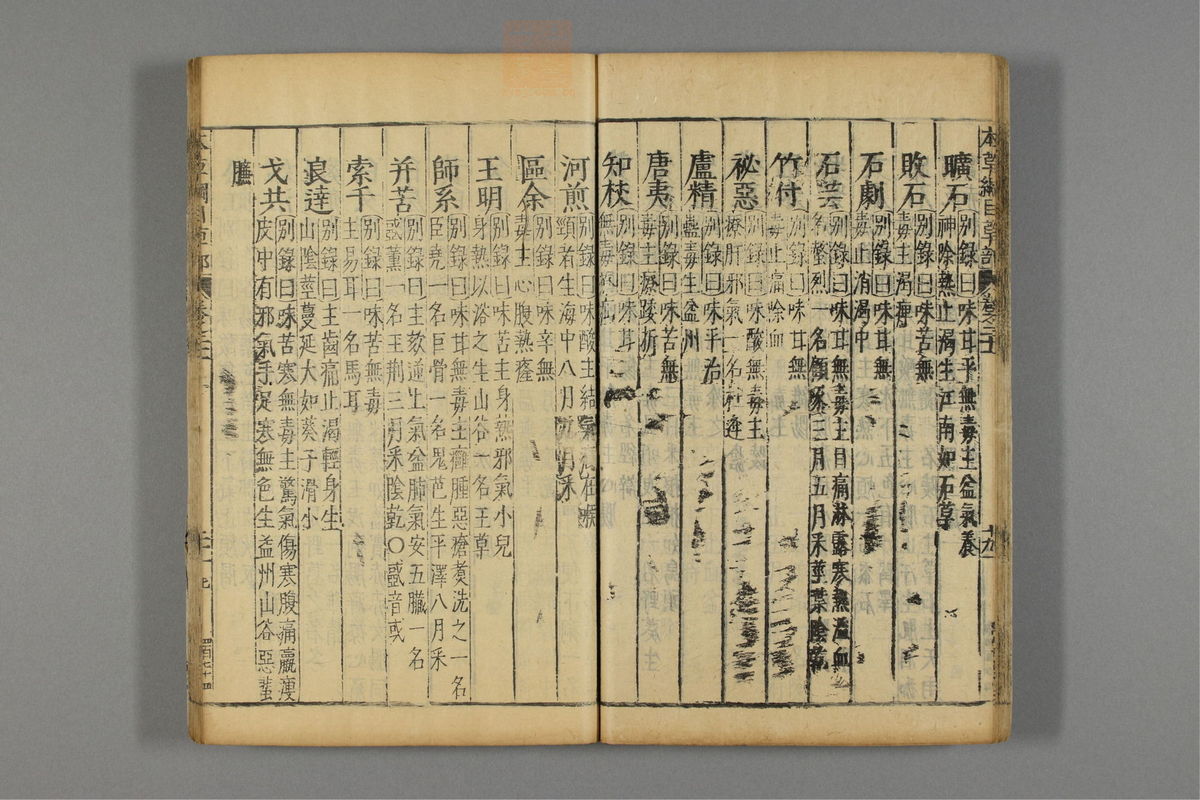 本草綱目草部 卷之二十一 十九
曠石 別錄曰味甘平無毒主益氣養
神除熱止渴生江南如石草
敗石 別錄曰味苦無
毒主渴痹
石劇 別錄曰味甘無
毒止消渴中
石芸 別錄曰味甘無毒主目痛淋露寒熱溢血
名螫烈一名顧啄三月五月采莖葉陰乾
竹付 別錄曰味甘無
毒止痛除血
祕惡 別錄曰味酸無毒主
療肝邪氣一名杜逢
盧精 別錄曰味平治
蠱毒生益州
唐夷 別錄曰味苦無
毒主療踒折
知杖 別錄曰味甘
無毒療疝
河煎 別錄曰味酸主結氣癰在喉
頸者生海中八月九月采
區余 別錄曰味辛無
毒主心腹熱癃
王明 別錄曰味苦主身熱邪氣小兒
身熱以浴之生山谷一名王草
師系 別錄曰味甘無毒主癰腫惡瘡煮洗之一名
臣堯一名巨骨一名鬼芭生平澤八月采
并苦 別錄曰主欬逆上氣益肺氣安五臟一名
蜮薰一名玉荆三月采陰乾〇蜮音或
索千 別錄曰味苦無毒
主易耳一名馬耳
良達 別錄曰主齒痛止渴輕身生
山陰莖蔓延大如葵子滑小
弋共 別錄曰味苦寒無毒主驚氣傷寒腹痛羸瘦
皮中有邪氣手足寒無色生益州山谷惡蜚
臁